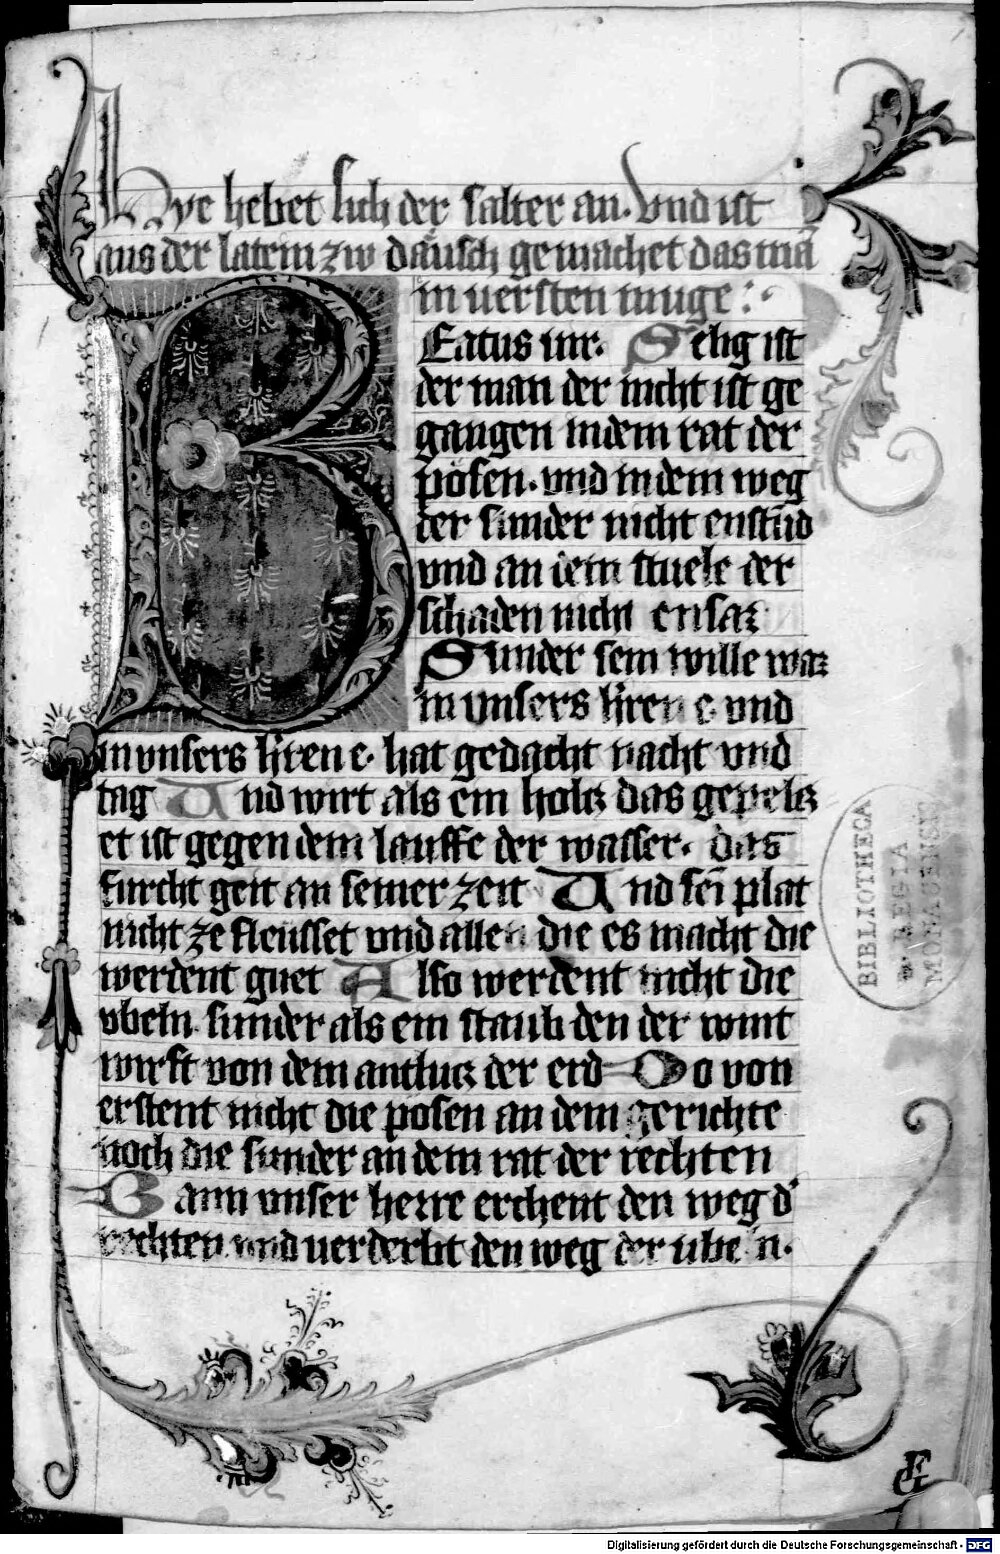 Hye hebet sich der salter an. Vnd ist
aus der latein zw däusch gemachet das mā
in uersten muge:
BEatus uir. Selig ist
der man der nicht ist ge
gangen in dem rat der
pösen. vnd in dem weg
der sunder nicht enstūd
vnd an dem stuele der
schaden nicht ensaz
Sunder sein wille waz
in vnsers h̄ren e vnd
in vnsers h̄ren e. hat gedacht nacht vnd
tag Und wirt als ein holcz das gepelcz
et ist gegen dem lauffe der wasser. das
furcht geit an seiner zeit Und sei plat
nicht ze fleusset vnd allen die es macht die
werdent guet Also werdent nicht die
vbeln. sunder als ein staub den der wint
wirft von dem antlucz der erd Do von
erstent nicht die pösen an dem gerichte
noch die sunder an dem rat der rechten
Wann vnser herre erchent den weg d'
rechten vnd uerderbt den weg der ubeln.
BIBLIOTHECA
REGIA
MONACENSIS
Digitalisierung gefördert durch die Deutsche Forschungsgemeinschaft - DFG